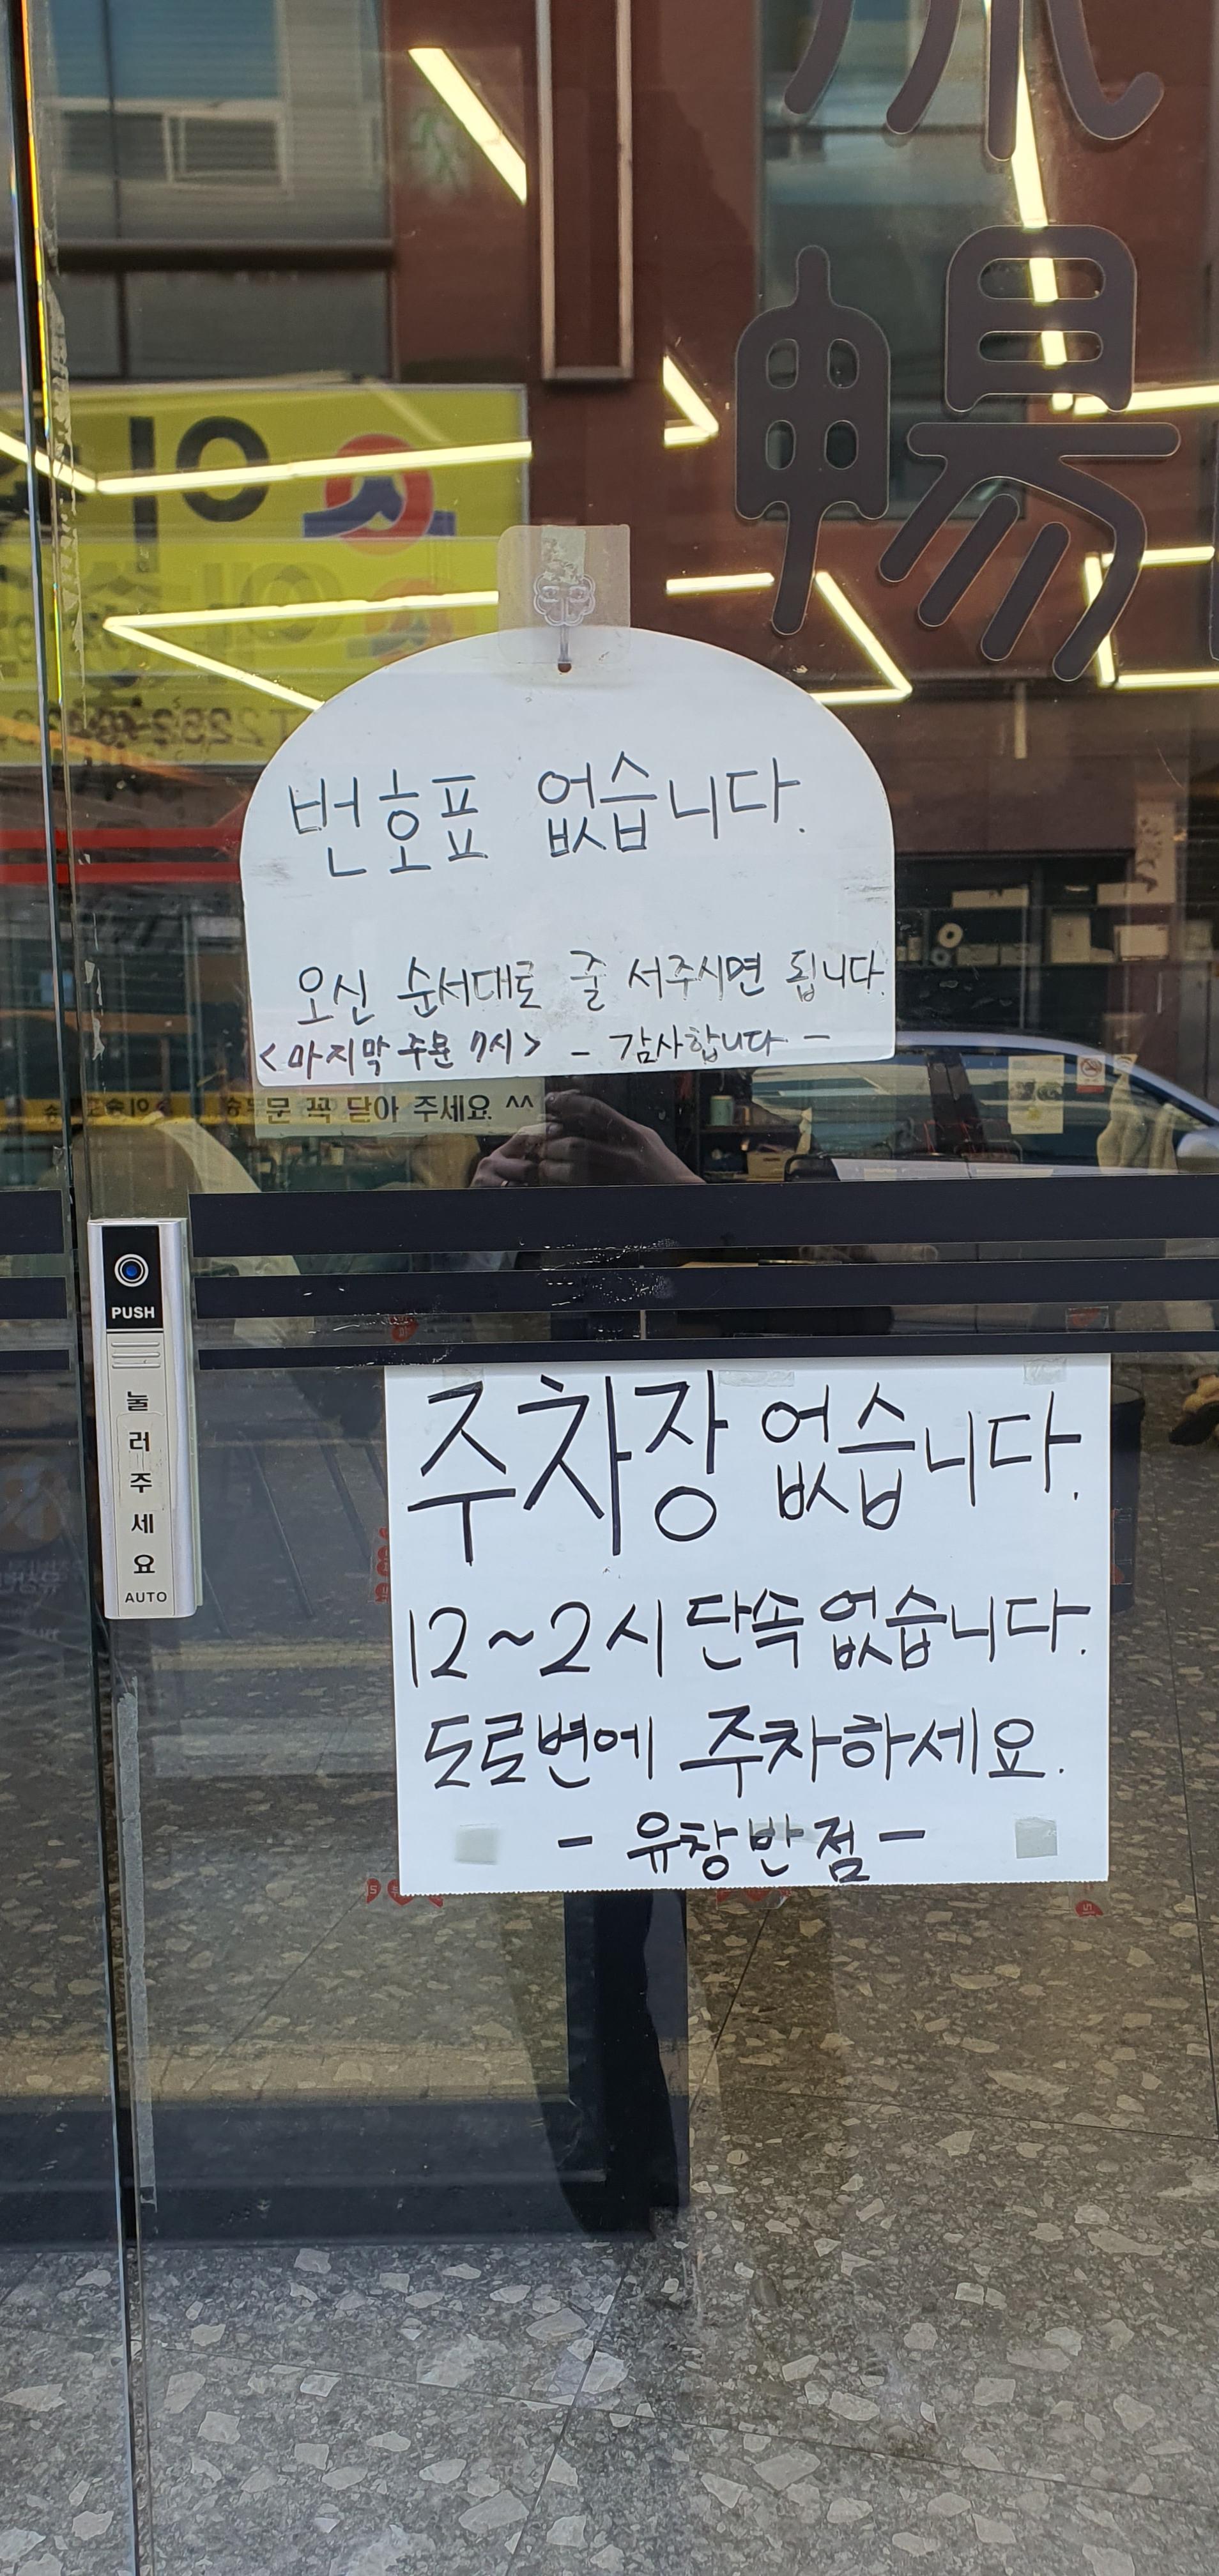 流
暢
번호표 없습니다.
오신 순서대로 줄 서주시면 됩니다.
<마지막 주문 7시> - 감사합니다 -
문 꼭 닫아 주세요 ^^
PUSH
눌
러
주
세
요
AUTO
주차장 없습니다.
12~2시 단속 없습니다.
도로변에 주차하세요.
- 유창반점 -